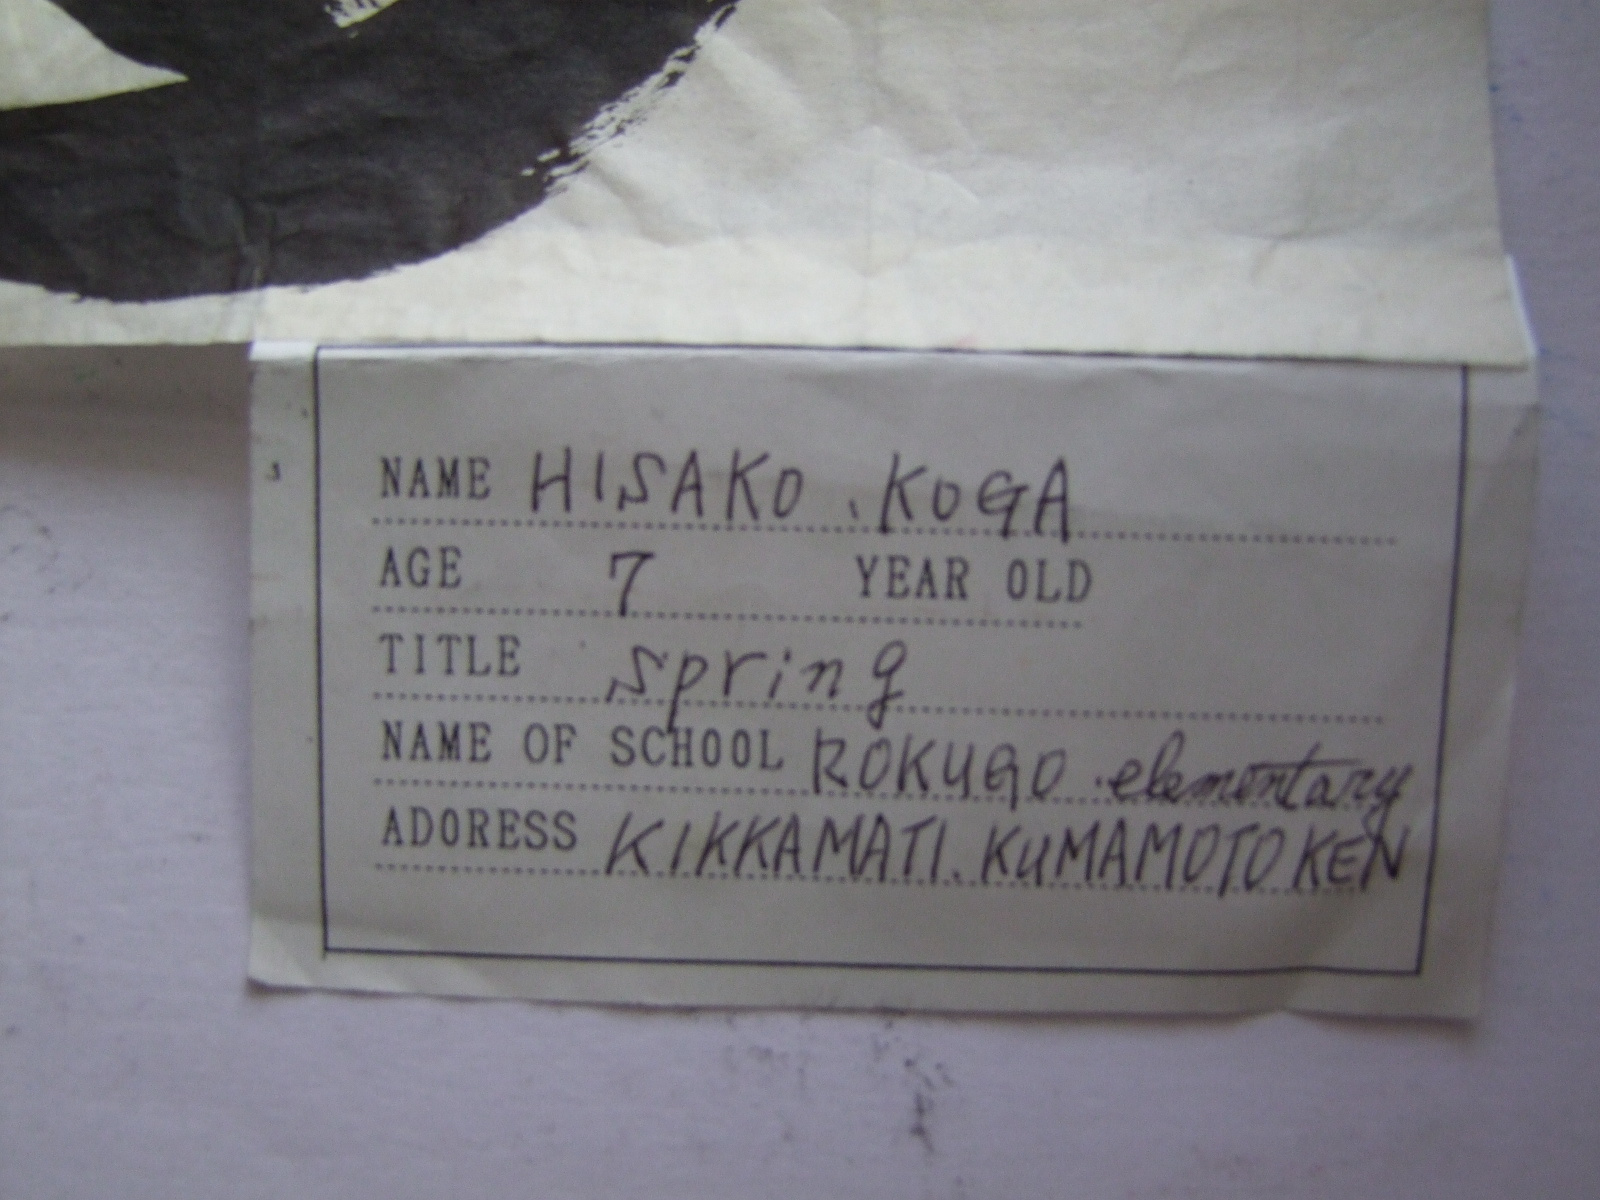 NAME HISAKO . KOGA
AGE 7 YEAR OLD
TITLE spring
NAME OF SCHOOL ROKUGO elementary
ADORESS KIKKAMATI. KUMAMOTO KEN